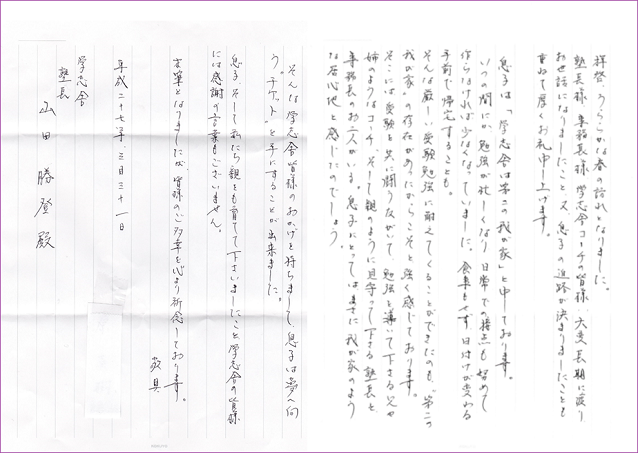 拝啓、うららかな春の訪れとなりました。
塾長様、事務長様、学志舎コーチの皆様、大変長期に渡り
お世話になりましたこと、又、息子の進路が決まりましたことも
重ねて厚くお礼申し上げます。
息子は、「学志舎は第二の我が家」と申しております。
いつの間にか勉強が忙しくなり、日常での接点も努めて
作らなければ少なくなっていました。食事もせず、日付けが変わる
手前で帰宅することも。
そんな厳しい受験勉強に耐えてくることができたのも、"第二の
我が家"の存在があったからこそと強く感じております。
そこには受験を共に闘う友がいて、勉強を導いて下さる兄や
姉のようなコーチ、そして親のように見守って下さる塾長と
事務長のお二人がいる。息子にとってはまさに我が家のよう
な居心地と感じたのでしょう。
そんな学志舎皆様のおかげを持ちまして、息子は夢へ向
う"チケット"を手にすることが出来ました。
息子、そして私たち親をも育てて下さいましたこと、学志舎の皆様
には感謝の言葉もございません。
末筆となりましたが、皆様のご多幸を心より祈念しております。
敬具
平成二十七年三月三十一日
学志舎
塾長
山田勝登殿